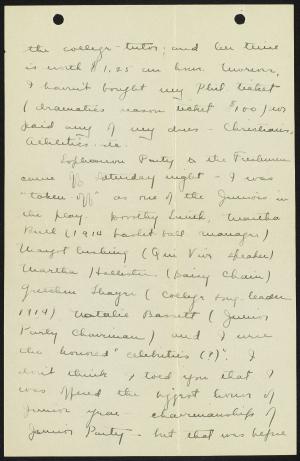 the college-tutor; and her time
is worth $1.25 an hour. Moreover,
I haven't bought my Phil ticket
(dramatics season ticket $1.00) nor
paid any of my dues - Christians,
Athletics - etc.
Sophomore Party to the Freshmen
came off Saturday night - I was
"taken-off" as one of the Juniors in
the play. Dorothy Smith, Martha
(1914 basket ball manager)
Margot Cushing (Qui Vive Speaker)
Martha (Daisy Chain)
Gretchen (College song-leader
1914) Natalie Bassett (Junior
Party Chairman) and I were
the honored "celebrities (?)". I
don't think I told you that I
was offered the biggest honor of
Junior year - chairmanship of
Junior Party - but that was before